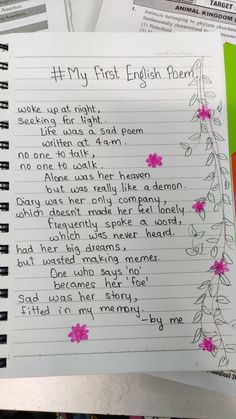 Assertion
TARGET
ANIMAL KINGDOM
Animals belonging to phylum chordata
fundamentally characterised
# My First English Poem
woke up at night,
Seeking for light.
Life was a sad poem
written at 4 a.m.
no one to talk,
no one to walk.
Alone was her heaven
but was really like a demon.
Diary was her only company,
which doesn't made her feel lonely.
Frequently spoke a word,
which was never heard.
had her big dreams,
but wasted making memes.
One who says 'no'
becames her 'foe'
Sad was her story,
fitted in my memory.
-by me